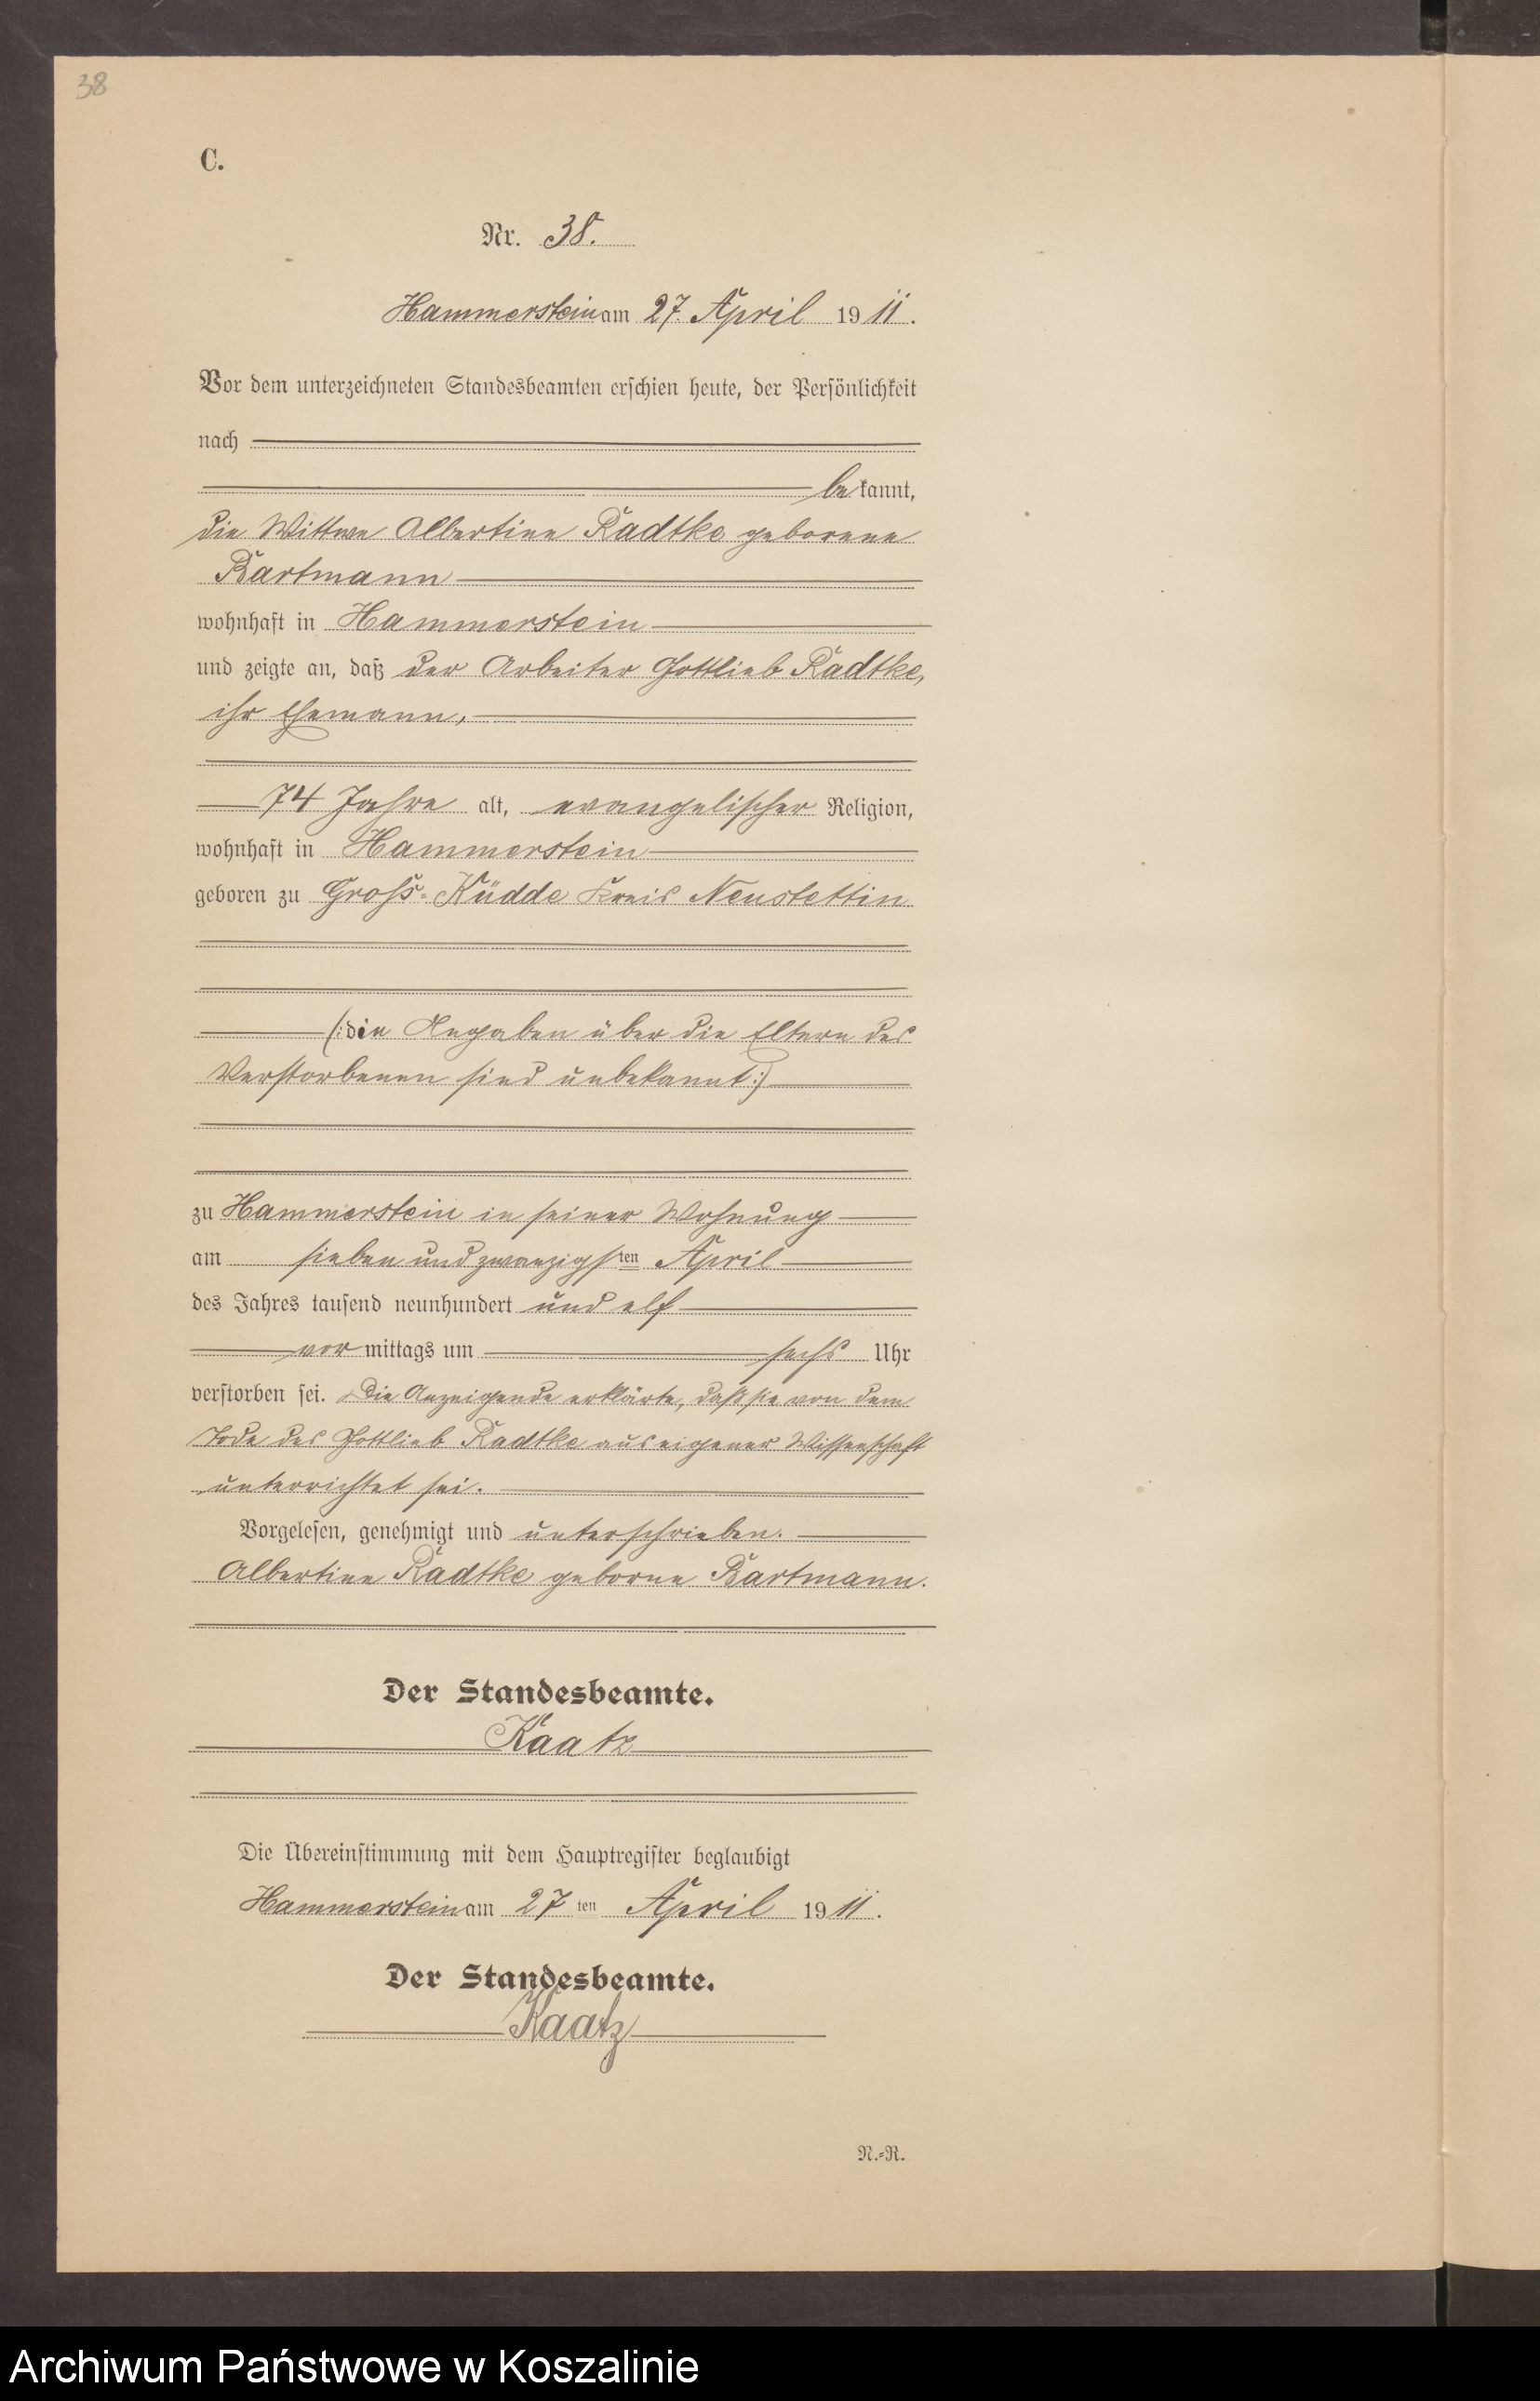 38
C.
Nr. 38.
Hammerstein am 27. April 1911.
Vor dem unterzeichneten Standesbeamten erschien heute, der Persönlichkeit
nach
bekannt,
die Wittwe Albertine Radtke geborene
Bartmann
wohnhaft in Hammerstein
und zeigte an, daß der Arbeiter Gottlieb Radtke,
ihr Ehemann,
74 Jahre alt, evangelischer Religion,
wohnhaft in Hammerstein
geboren zu Groß-Küdde Kreis Neustettin
(:die Angaben über die Eltern des
Verstorbenen sind unbekannt:)
zu Hammerstein in seiner Wohnung
am sieben und zwanzigsten April
des Jahres tausend neunhundert und elf
vormittags um sechs Uhr
verstorben sei. Die Anzeigende erklärte, daß sie von dem
Tode des Gottlieb Radtke aus eigener Wissenschaft
unterrichtet sei.
Vorgelesen, genehmigt und unterschrieben.
Albertine Radtke geborne Bartmann.
Der Standesbeamte.
Kaatz
Die Übereinstimmung mit dem Hauptregister beglaubigt
Hammerstein am 27ten April 1911.
Der Standesbeamte.
Kaatz
N.=R.
Archiwum Państwowe w Koszalinie